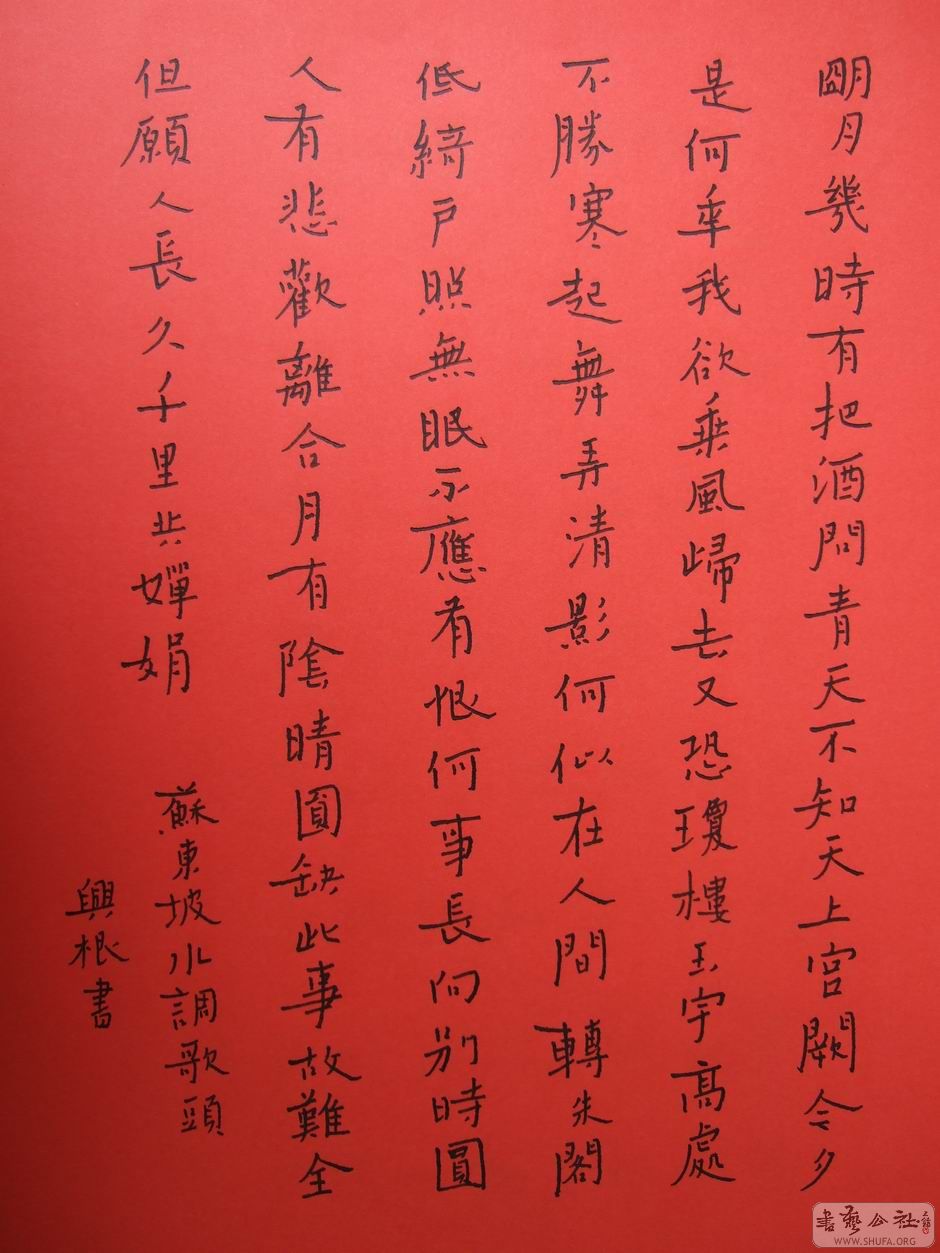 朙月幾時有把酒問青天不知天上宮闕今夕
是何年我欲乘風歸去又恐瓊樓玉宇高處
不勝寒起舞弄清影何似在人間轉朱閣
低綺戶照無眠不應有恨何事長向别時圓
人有悲歡離合月有陰晴圓缺此事故難全
但願人長久千里共嬋娟
蘇東坡水調歌頭
興根書
書藝公社
WWW.SHUFA.ORG